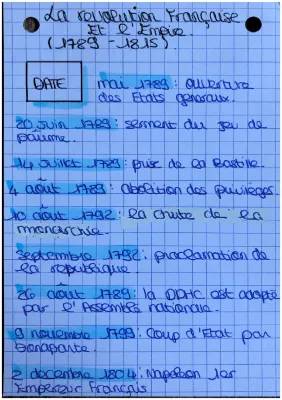 La revolution Française
Et l'Empire.
(1789 - 1815)
DATE
mai 1789: ouverture
des Etats generaux.
20 juin 1789: serment du jeu de
paume.
14 juillet 1789: prise de la Bastille.
4 août 1789: abolition des privilèges.
10 août 1792: la chute de la
monarchie.
Septembre 1792: proclamation de
la république.
26 août 1789: la DDHC est adopté
par l'Assemblé nationale.
9 novembre 1799: Coup d'Etat par
Bonaparte.
2 decembre 1804: Napoléon 1er
Empereur Français